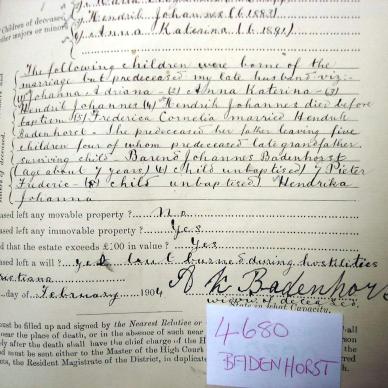 Hendrik Johannes (b. 1883)
Children of deceased,
Anna Katerina (b. 1891)
The following children were borne of the
marriage but predeceased my late husband viz:-
(1) Johanna Adriana - (2) Anna Katerina - (3)
Hendrik Johannes (4) Hendrik Johannes died before
baptism (5) Frederica Cornelia married Hendrik
Badenhorst. She predeceased her father leaving five
children four of whom predeceased late grandfather.
surviving child Barend Johannes Badenhorst
(age about 7 years) (6) child unbaptised 7 Pieter
Frederic - (8) child unbaptised Hendrika
Johanna
ased left any movable property? No
ased left any immovable property? Yes
d that the estate exceeds £100 in value? Yes
sed left a will? yes but burned during hostilities
day of February 1904
A K Badenhorst
State in what Capacity.
must be filled up and signed by the Nearest Relative or
near the place of death, or in the absence of such near
ly after the death shall have the chief charge of the
d must be sent either to the Master of the High Court
, the Resident Magistrate of the District, in duplicate
4-680
BADENHORST